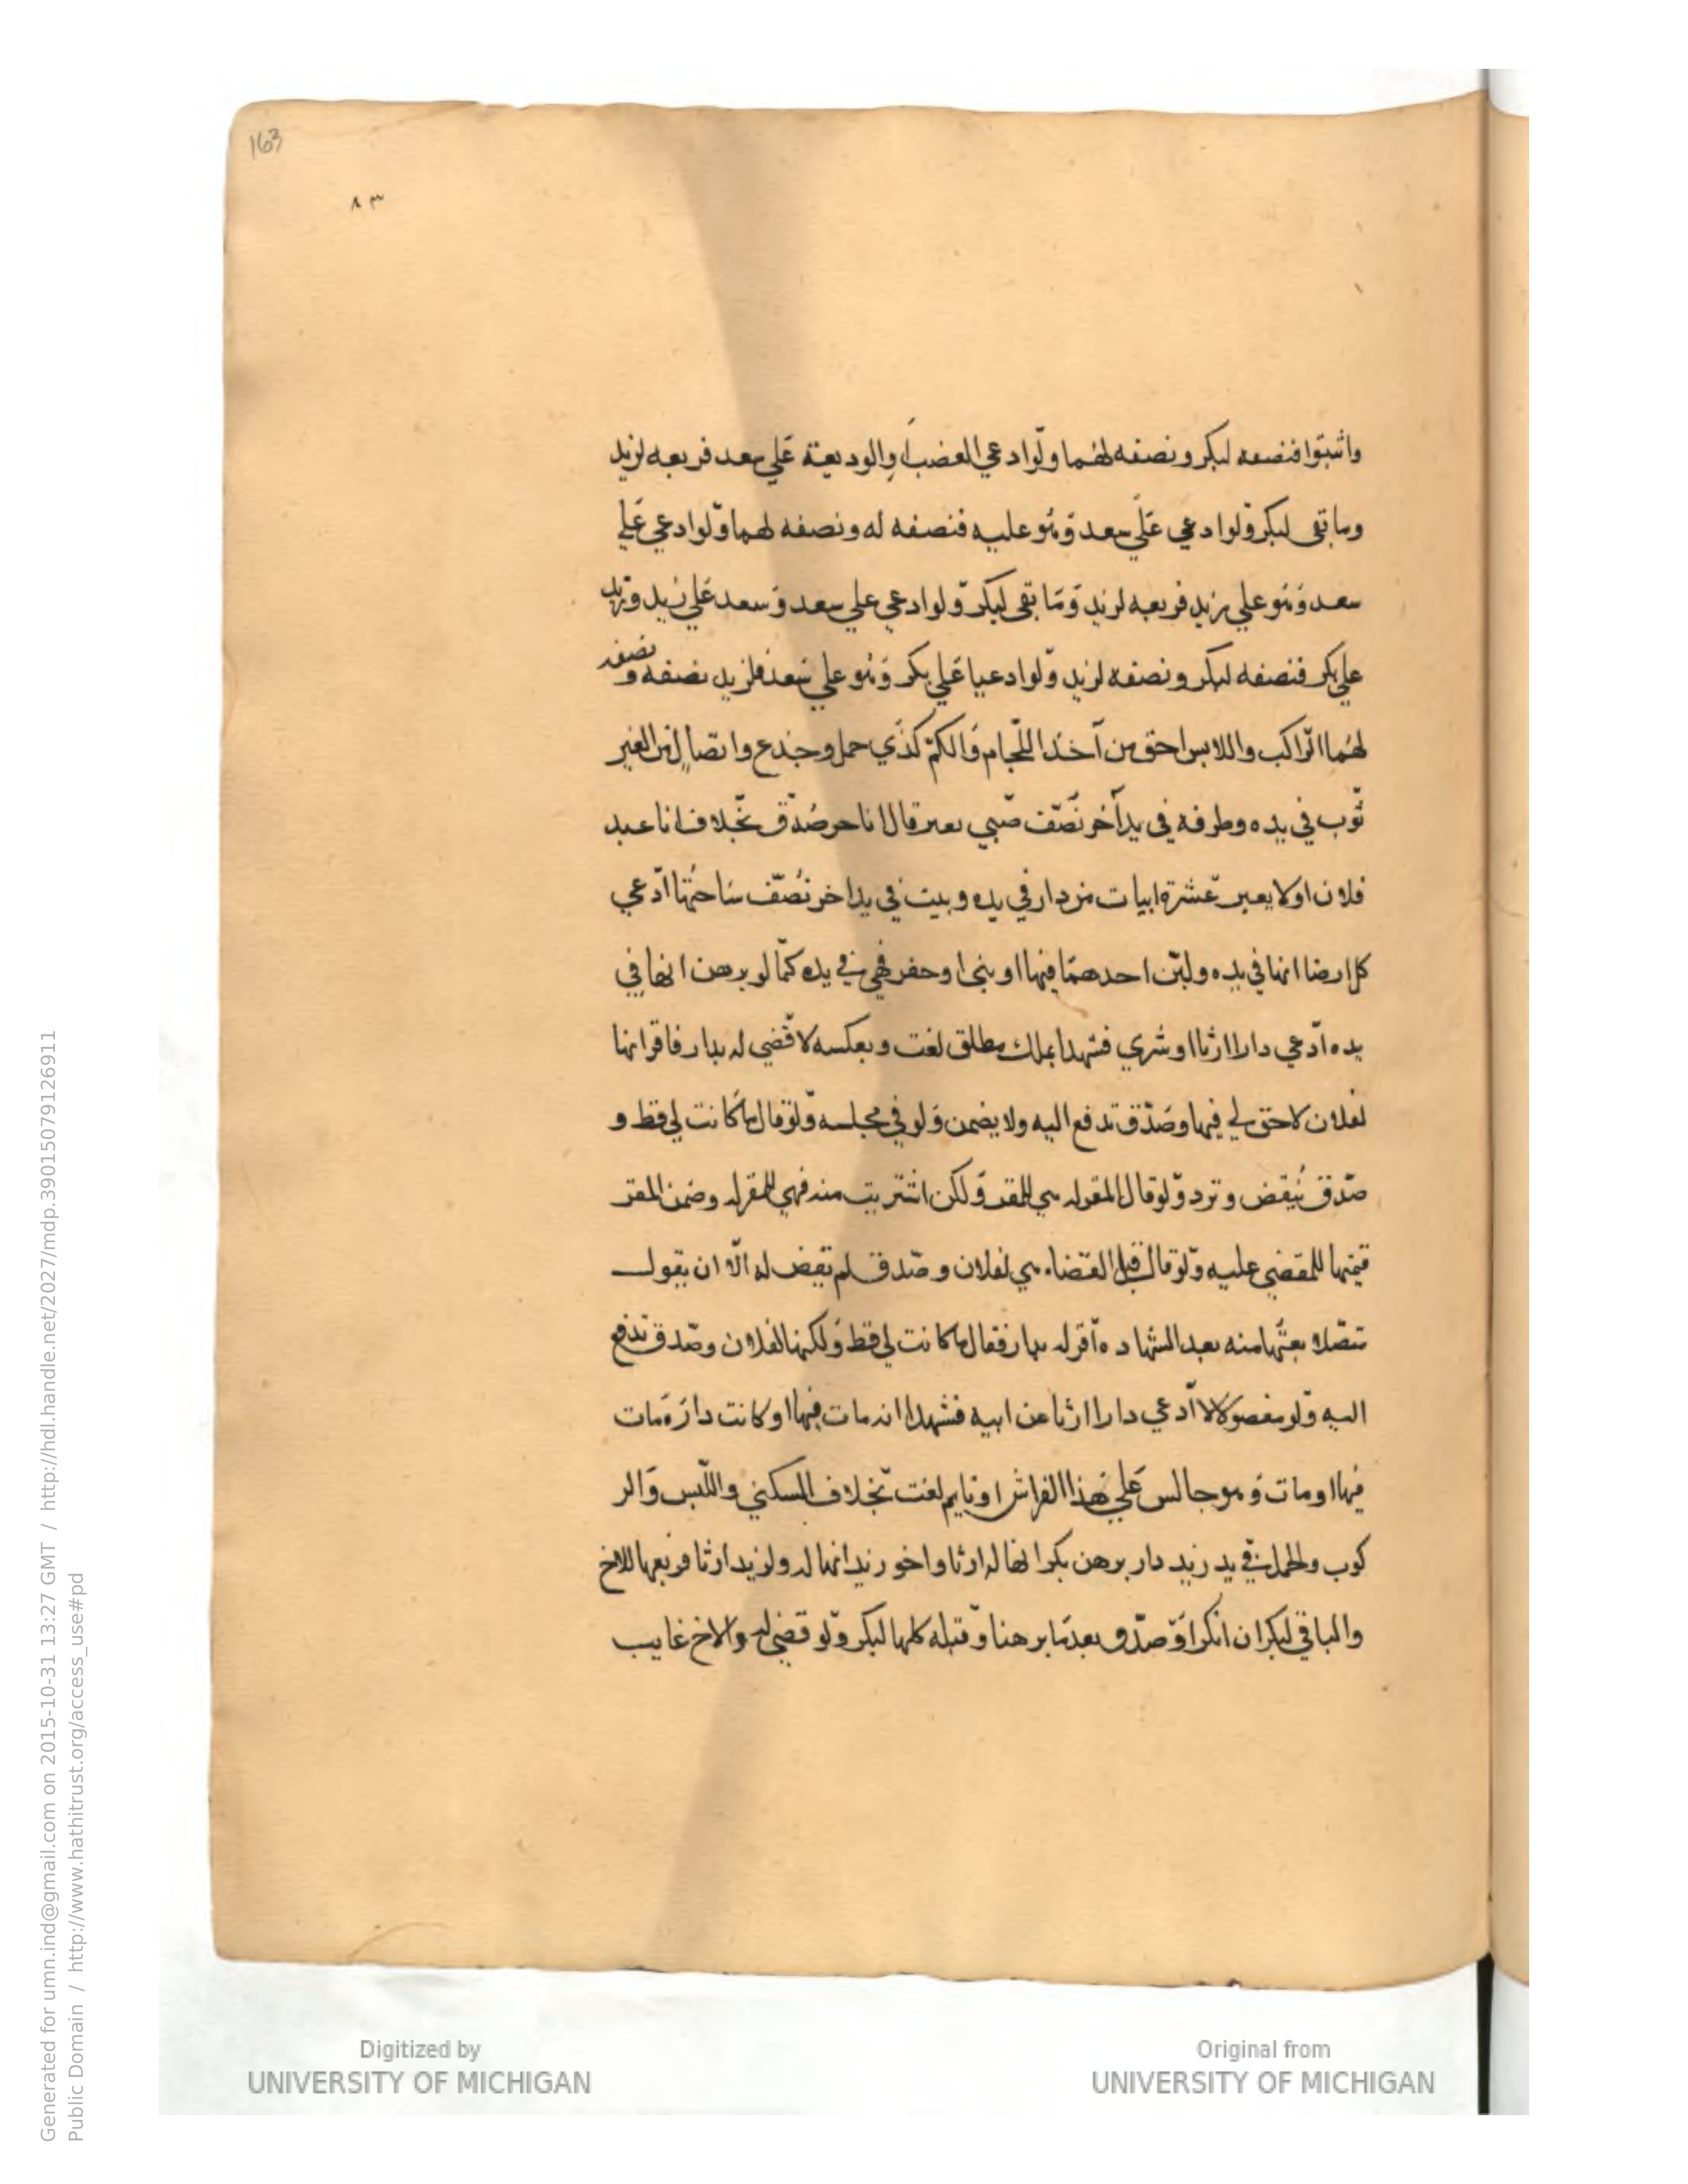 163
٨٣
واثبتوا فنصفه لبكر ونصفه لهما ولو ادعي الغصب اوالوديعة علي سعد فربعه لزيد
وما بقي لبكر ولو ادعي علي سعد وهو عليه فنصفه له ونصفه لهما ولو ادعي علي
سعد وهو علي زيد فربعه لزيد وما بقي لبكر ولو ادعي علي سعد وسعد علي زيد وزيد
علي بكر فنصفه لبكر ونصفه لزيد ولو ادعيا علي بكر وهو علي سعد فلزيد نصفه ونصفه
لهما الراكب واللابس احق من آخذ اللجام والكم كذي حمل وجذع واتصال من الغير
ثوب في يده وطرفه في يد آخر نصف صبي يعبر قال انا حر صدق بخلاف انا عبد
فلان او لا يعبر عشرة ابيات من دار في يده وبيت في يد اخر نصف ساحتها ادعي
كل ارضا انها في يده ولبن احدهما فيها او بني او حفر فهي في يده كما لو برهن انها في
يده ادعي دارا ارثا او شري فشهدا بملك مطلق لغت وبعكسه لا قضي له بدار فاقر انها
لفلان لا حق لي فيها وصدق تدفع اليه ولا يضمن ولو في مجلسه ولو قال ما كانت لي قط و
صدق ينقض وترد ولو قال المقر له هي للمقر ولكن اشتريت منه فهي للمقر له وضمن المقر
قيمتها للمقضي عليه ولو قال قبل القضاء هي لفلان وصدق لم تقض له الا ان يقول
متصلا بعتها منه بعد الشهاده اقر له بدار فقال ما كانت لي قط ولكنها لفلان وصدق تدفع
اليه ولو مفصولا لا ادعي دارا ارثا عن ابيه فشهدا انه مات فيها او كانت داره مات
فيها او مات وهو جالس علي هذا الفراش او نايم لغت بخلاف السكني واللبس والر
كوب والحمل في يد زيد دار برهن بكر انها له ارثا واخو زيد انها له ولزيد ارثا فربعها للاخ
والباقي لبكر ان انكر او صدق بعد ما برهنا وقبله كلها لبكر ولو قضي له والاخ غايب
Digitized by
UNIVERSITY OF MICHIGAN
Original from
UNIVERSITY OF MICHIGAN
Generated for umn.ind@gmail.com on 2015-10-31 13:27 GMT / http://hdl.handle.net/2027/mdp.39015079126911
Public Domain / http://www.hathitrust.org/access_use#pd